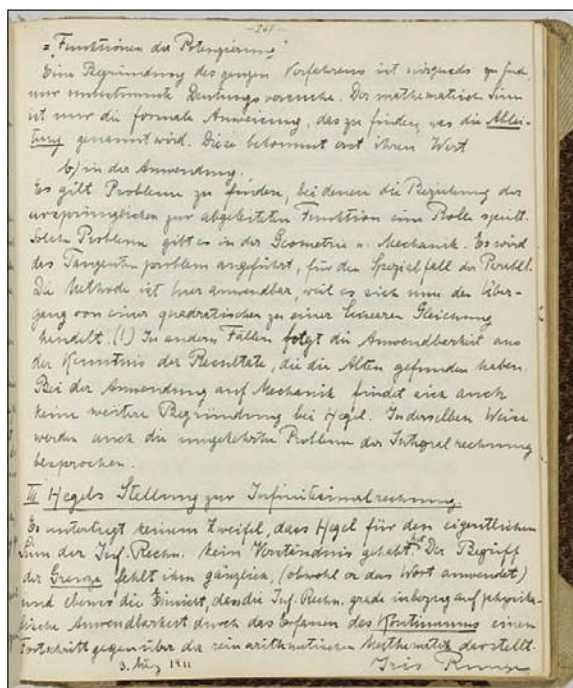 - 264 -
= „Funktionen der Potenzierung"
Eine Begründung des ganzen Verfahrens ist nirgends zu finden,
nur unbestimmte Deutungsversuche. Der mathematische Sinn
ist nur die formale Anweisung, das zu finden, was die Ablei-
tung genannt wird. Diese bekommt erst ihren Wert
b) in der Anwendung.
Es gilt Probleme zu finden, bei denen die Beziehung der
ursprünglichen zur abgeleiteten Funktion eine Rolle spielt.
Solche Probleme gibt es in der Geometrie u. Mechanik. Es wird
das Tangentenproblem angeführt, für den Spezialfall der Parabel.
Die Methode ist hier anwendbar, weil es sich um den Über-
gang von einer quadratischen zu einer linearen Gleichung
handelt. (!) In andern Fällen folgt die Anwendbarkeit aus
der Kenntnis der Resultate, die die Alten gefunden haben.
Bei der Anwendung auf Mechanik findet sich auch
keine weitere Begründung bei Hegel. In derselben Weise
werden auch die umgekehrten Probleme der Integralrechnung
besprochen.
III Hegels Stellung zur Infinitesimalrechnung.
Es unterliegt keinem Zweifel, dass Hegel für den eigentlichen
Sinn der Inf. Rechn. kein Verständnis gehabt hat. Der Begriff
der Grenze fehlt ihm gänzlich, (obwohl er das Wort anwendet)
und ebenso die Einsicht, dass die Inf. Rechn. grade in bezug auf physika-
lische Anwendbarkeit durch das Erfassen des Kontinuums einen
Fortschritt gegenüber der rein arithmetischen Mathematik darstellt.
3. Aug 1911 Iris Runge